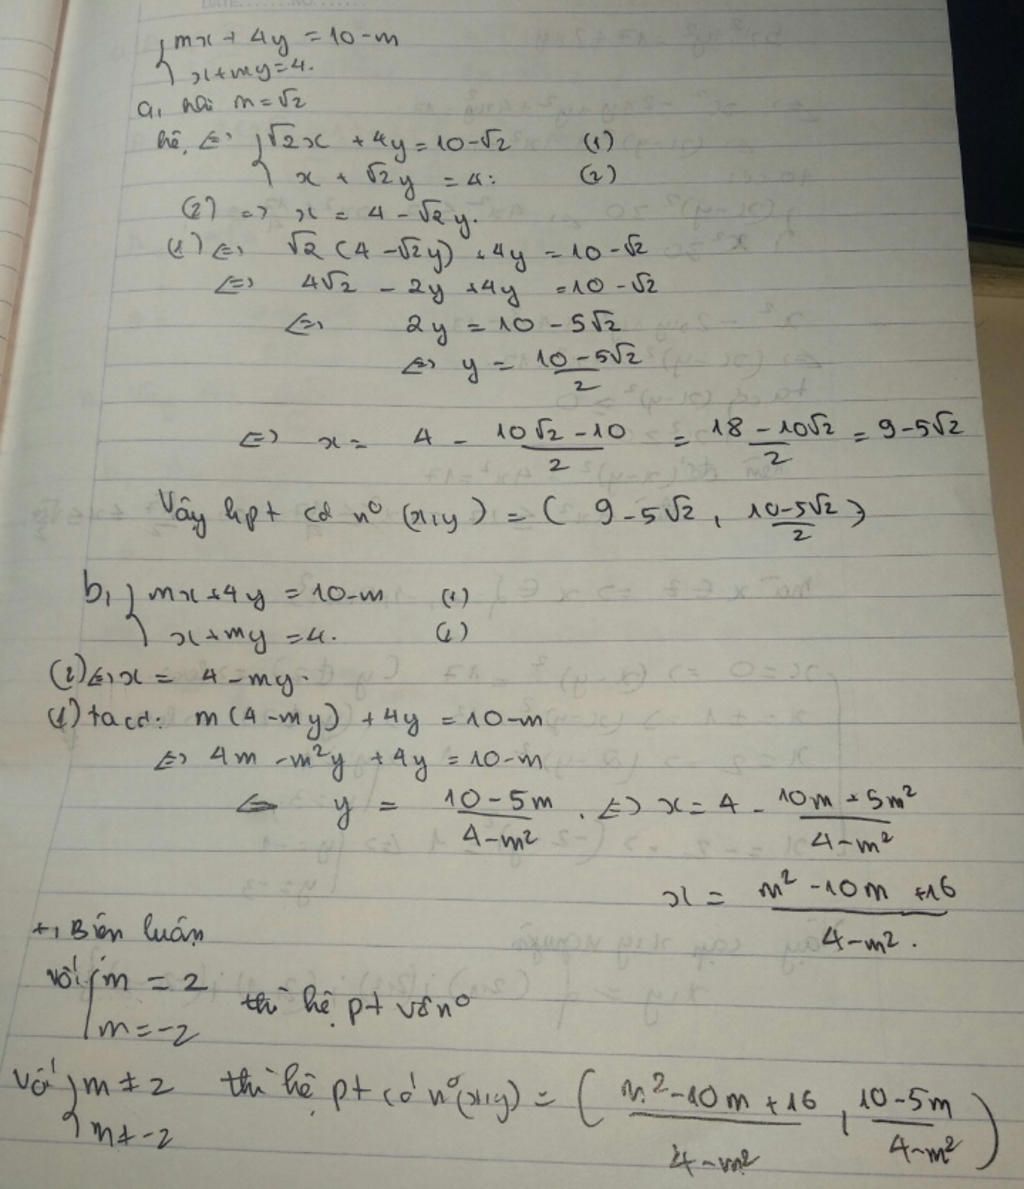 { mx + 4y = 10 - m
x + my = 4.
a, khi m = √2
hệ, <=> { √2x + 4y = 10 - √2 (1)
x + √2y = 4: (2)
(2) => x = 4 - √2y.
(1) <=> √2(4 - √2y) + 4y = 10 - √2
<=> 4√2 - 2y + 4y = 10 - √2
<=> 2y = 10 - 5√2
<=> y = (10 - 5√2)/2
<=> x = 4 - (10√2 - 10)/2 = (18 - 10√2)/2 = 9 - 5√2
Vậy hpt có n° (x,y) = (9 - 5√2, (10 - 5√2)/2)
b, { mx + 4y = 10 - m (1)
x + my = 4. (2)
(2) <=> x = 4 - my.
(1) ta có: m(4 - my) + 4y = 10 - m
<=> 4m - m²y + 4y = 10 - m
<=> y = (10 - 5m)/(4 - m²). <=> x = 4 - (10m - 5m²)/(4 - m²)
x = (m² - 10m + 16)/(4 - m²).
+, Biện luận
với [ m = 2
m = -2 thì hệ pt vô n°
với { m ≠ 2 thì hệ pt có n° (x,y) = ((m² - 10m + 16)/(4 - m²), (10 - 5m)/(4 - m²))
m ≠ -2